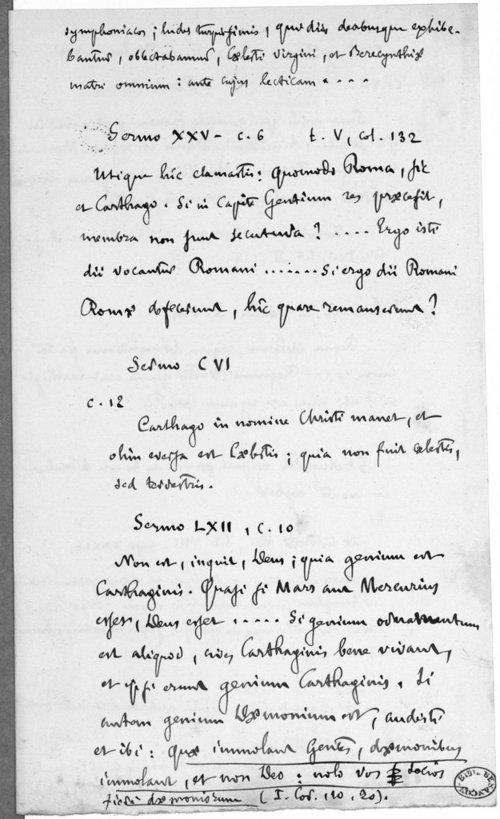 symphoniacos ; ludos turpissimos, qui diis deabusque exhibe-
bantur, oblectabamur, Cælesti Virgini, et Berecynthiæ
matri omnium : ante cujus lecticam . . . .
Sermo XXV - c. 6 t. V, Col. 132
Utique hic clamastis : quomodo Roma, sic
et Carthago. Si in Capite Gentium res præcessit,
membra non sunt secutura ? .... Ergo isti
dii vocantur Romani ....... Si ergo dii Romani
Romæ defecerunt, hic quare remanserunt ?
Sermo CVI
c. 12
Carthago in nomine Christi manet, et
olim eversa est Cælestis ; quia non fuit cælestis,
sed terrestris.
Sermo LXII, C. 10
Non est, inquit, Deus ; quia genium est
Carthaginis. Quasi si Mars aut Mercurius
esset, Deus esset ..... Si genium ornamentum
est aliquod, cives Carthaginis bene vivant,
et ipsi erunt genium Carthaginis. Si
autem genium Dæmonium est, audisti
et ibi : Quæ immolant Gentes, dæmonibus
immolant, et non Deo : nolo vos socios
fieri dæmoniorum (I. Cor. 10, 20).